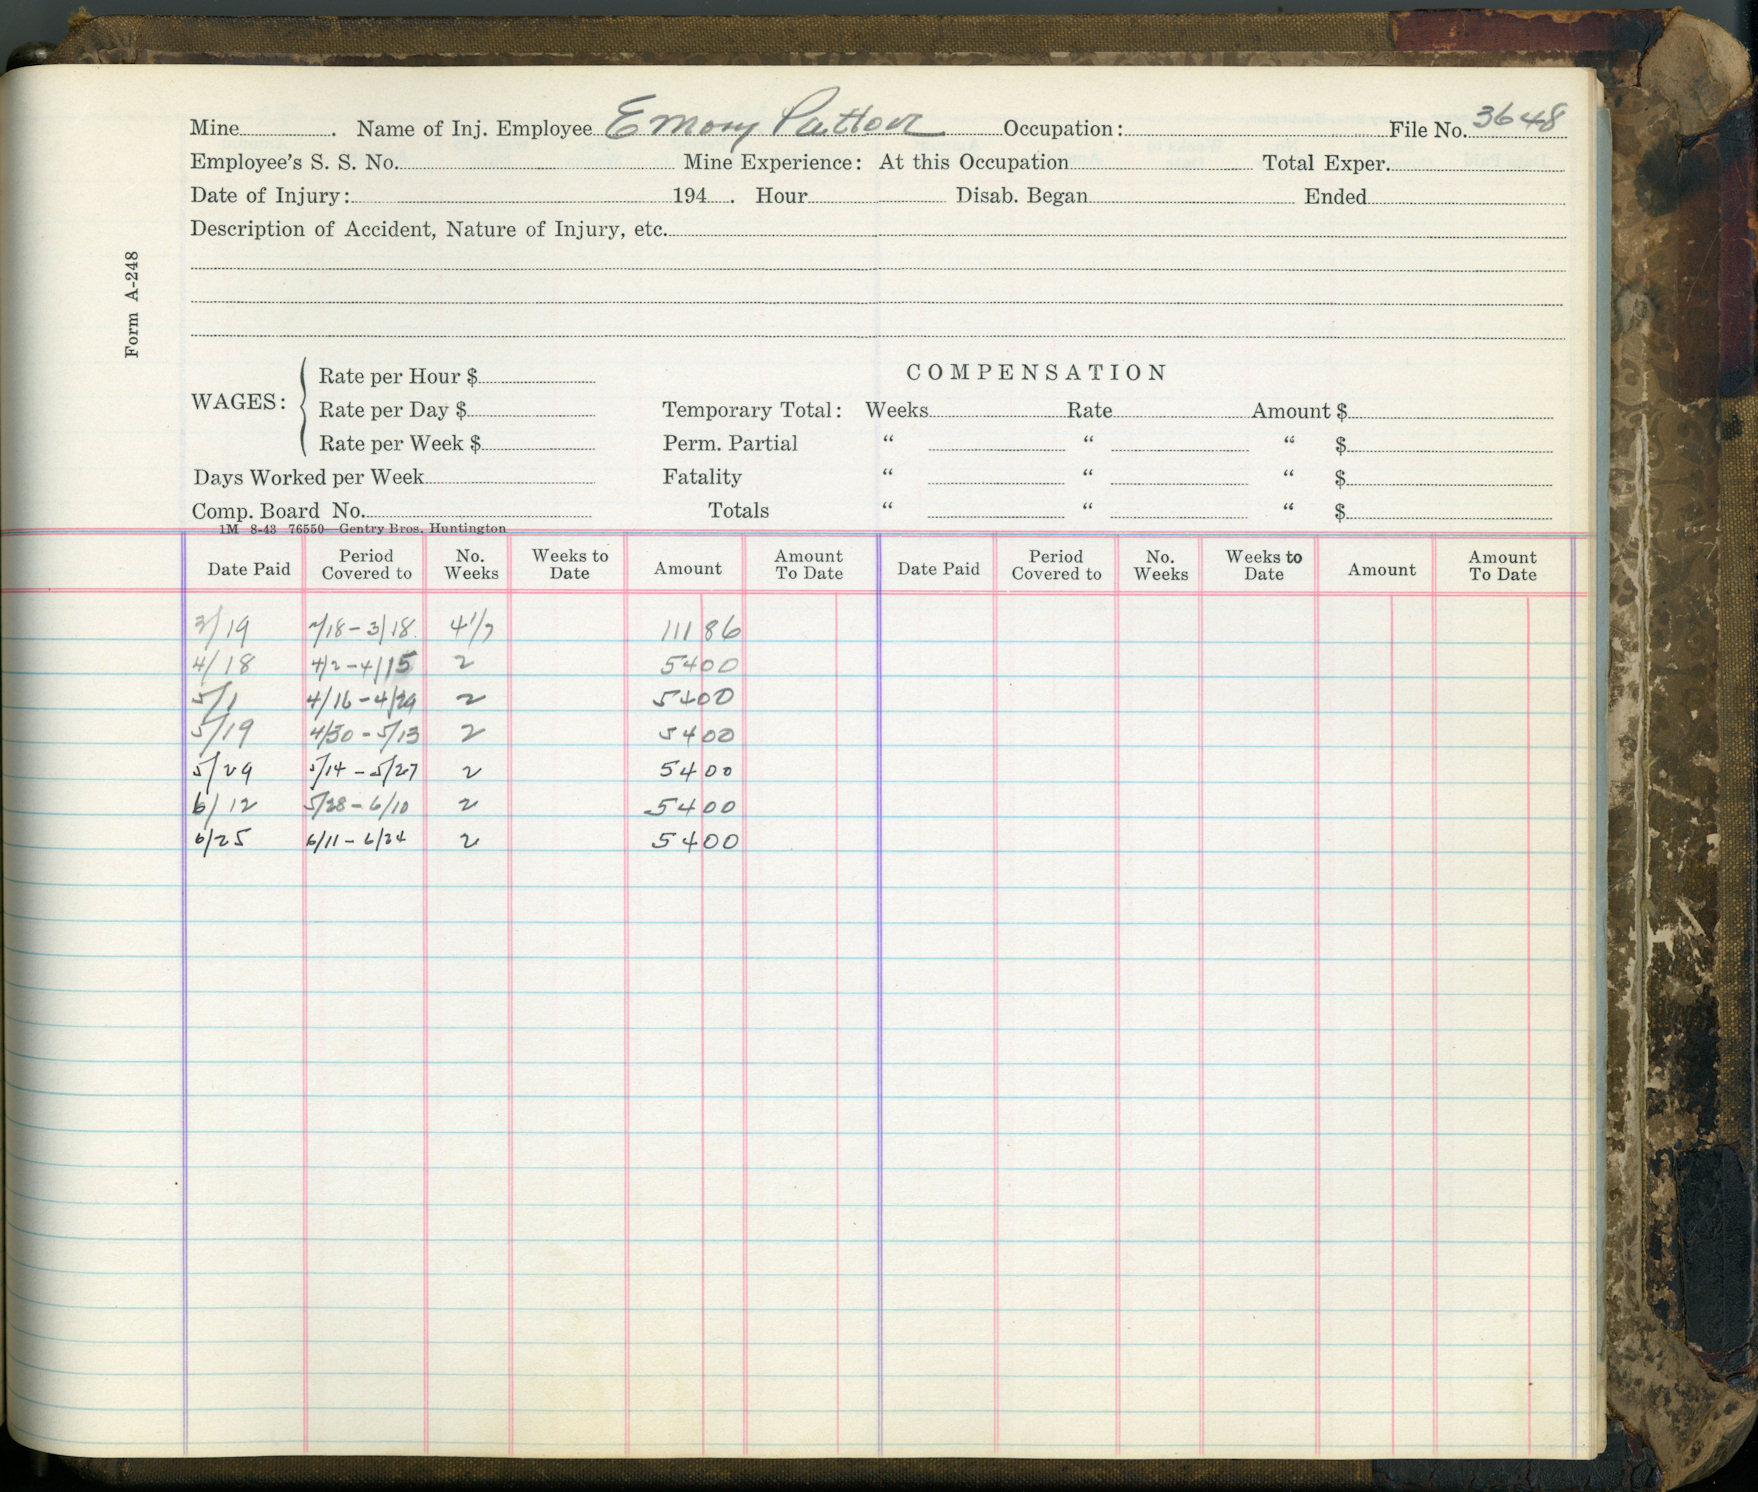 Mine . Name of Inj. Employee Emory Patton Occupation: File No. 3648
Employee's S. S. No. Mine Experience: At this Occupation Total Exper.
Date of Injury: 194 . Hour Disab. Began Ended
Description of Accident, Nature of Injury, etc.
Form A-248
WAGES: Rate per Hour $ COMPENSATION
Rate per Day $ Temporary Total: Weeks Rate Amount $
Rate per Week $ Perm. Partial " " " $
Days Worked per Week Fatality " " " $
Comp. Board No. Totals " " " $
1M 8-43 76550 Gentry Bros. Huntington
Date Paid Period Covered to No. Weeks Weeks to Date Amount Amount To Date Date Paid Period Covered to No. Weeks Weeks to Date Amount Amount To Date
3/19 2/18-3/18 4 1/7 111 86
4/18 4/2-4/15 2 54 00
5/1 4/16-4/29 2 54 00
5/19 4/30-5/13 2 54 00
5/29 5/14-5/27 2 54 00
6/12 5/28-6/10 2 54 00
6/25 6/11-6/24 2 54 00